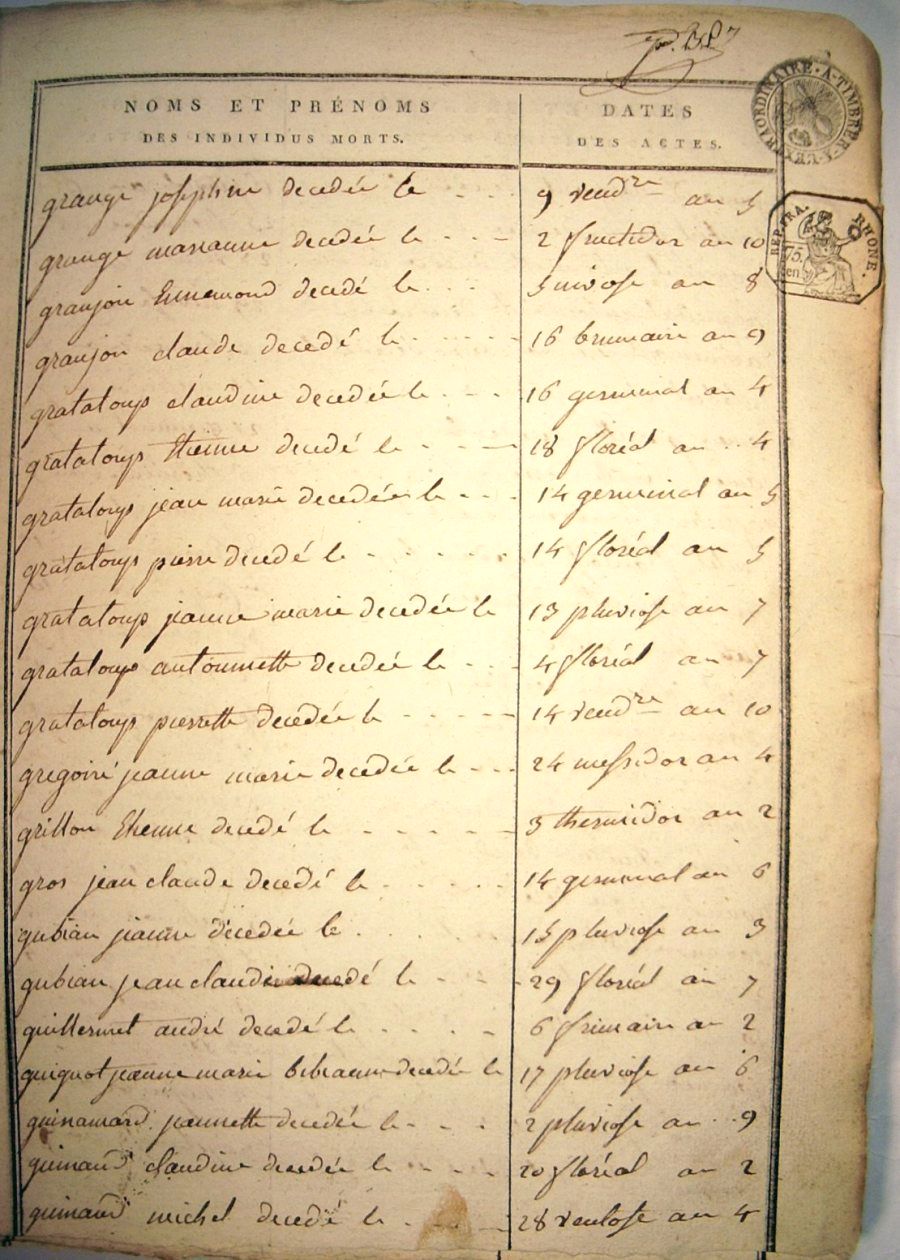 NOMS ET PRÉNOMS
DES INDIVIDUS MORTS.
DATES
DES ACTES.
A L'EXTRAORDINAIRE · A · TIMBRER
REP. FRA.
RHONE.
75.
cen
grange josephine decedée le 9 vend.re an 5
grange marianne decedée le 2 fructidor an 10
granjon Ennemond decedé le 5 nivose an 8
granjon claude decedé le 16 brumaire an 9
grataloup claudine decedée le 16 germinal an 4
grataloup Etienne decedé le 18 floréal an 4
grataloup jean marie decedée le 14 germinal an 5
grataloup pierre decedé le 14 floréal an 5
grataloup jeanne marie decedée le 13 pluviose an 7
grataloup antoinnette decedée le 4 floréal an 7
grataloup pierrette decedée le 14 vend.re an 10
gregoire jeanne marie decedée le 24 messidor an 4
grillon Etienne decedé le 3 thermidor an 2
gros jean claude decedé le 14 germinal an 6
gubian jeanne decedée le 15 pluviose an 3
gubian jean claude decedé le 29 floréal an 7
guillermet andré decedé le 6 frimaire an 2
guignot jeanne marie bibianne decedée le 17 pluviose an 6
guinamard jeannette decedée le 2 pluviose an 9
guinand claudine decedée le 20 floréal an 2
guinand michel decedé le 28 ventose an 4